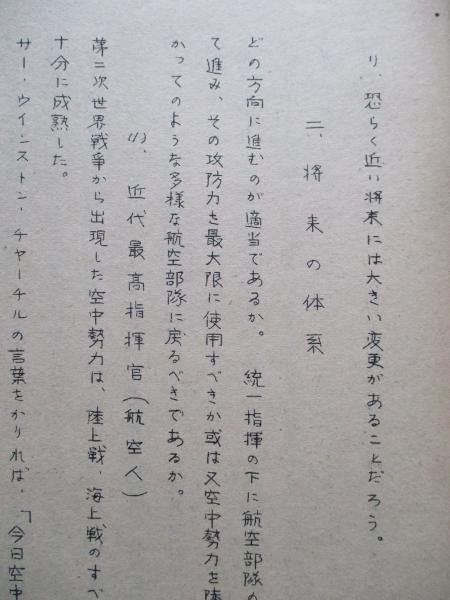 り、恐らく近い将来には大きい変更があることだろう。
二、将来の体系
どの方向に進むのが適当であるか。　統一指揮の下に航空部隊の
て進み、その攻防力を最大限に使用すべきか或は又空中勢力を陸
かってのような多様な航空部隊に戻るべきであるか。
(1)、近代最高指揮官(航空人)
第二次世界戦争から出現した空中勢力は、陸上戦、海上戦のすべ
十分に成熟した。
サー・ウインストン・チャーチルの言葉をかりれば、「今日空中